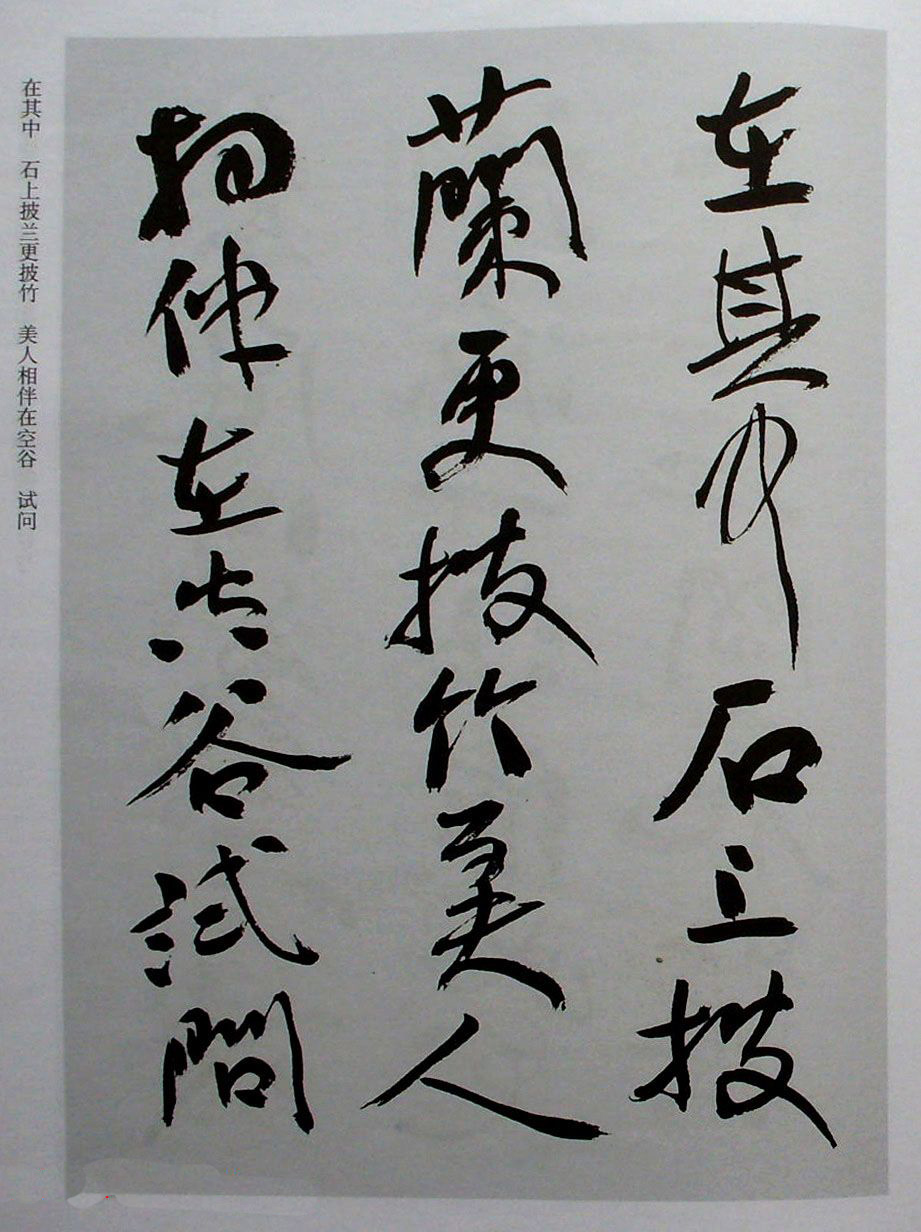 在其中石上披
蘭更披竹美人
相伴在空谷試問
在其中 石上披兰更披竹 美人相伴在空谷 试问